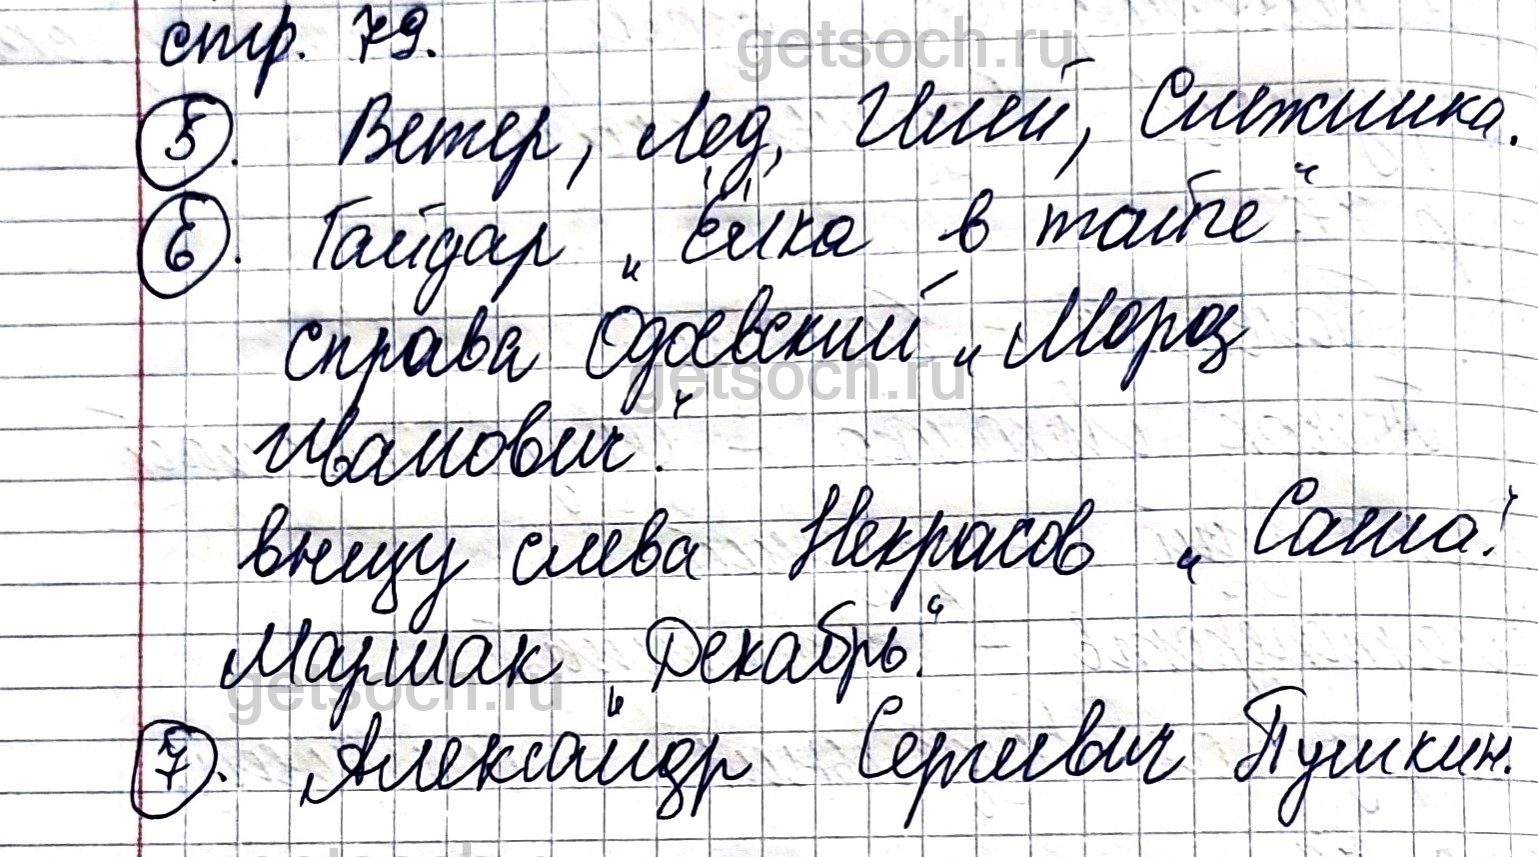 стр. 79.
getsoch.ru
5. Ветер, Лед, Иней, Снежинка.
6. Гайдар „Ёлка в тайге“
справа Одоевский „Мороз
getsoch.ru
Иванович“.
внизу слева Некрасов „Саша“.
Маршак „Декабрь“.
getsoch.ru
7. Александр Сергеевич Пушкин.